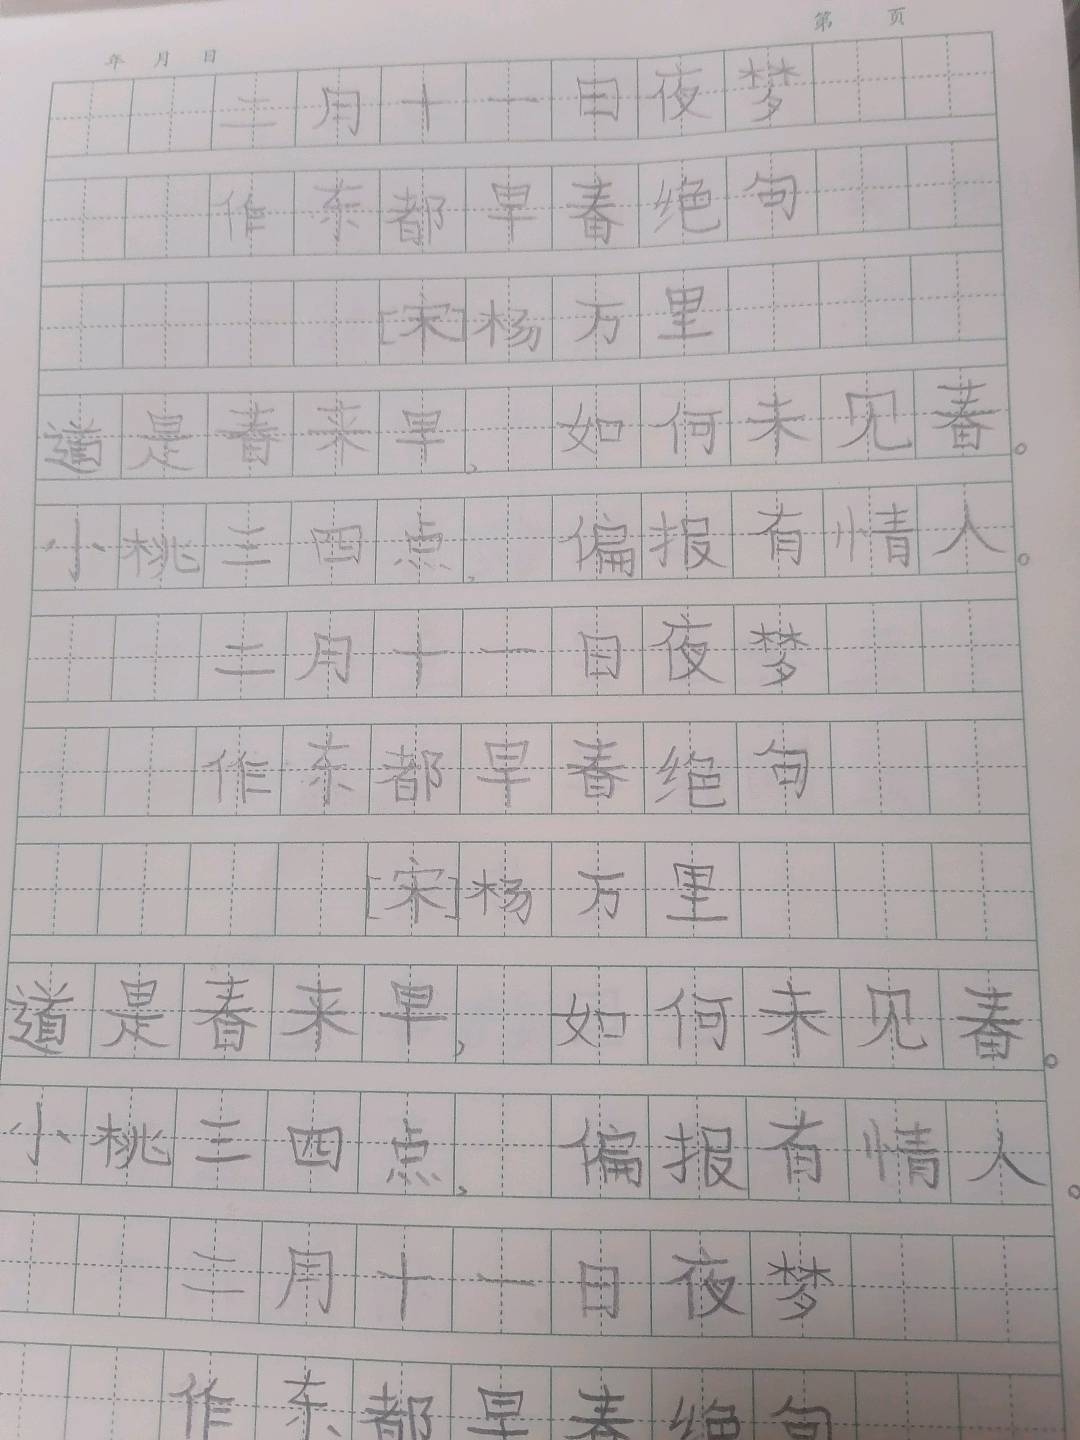 年 月 日 第 页
二月十一日夜梦
作东都早春绝句
[宋]杨万里
道是春来早，如何未见春。
小桃三四点，偏报有情人。
二月十一日夜梦
作东都早春绝句
[宋]杨万里
道是春来早，如何未见春。
小桃三四点，偏报有情人。
二月十一日夜梦
作东都早春绝句